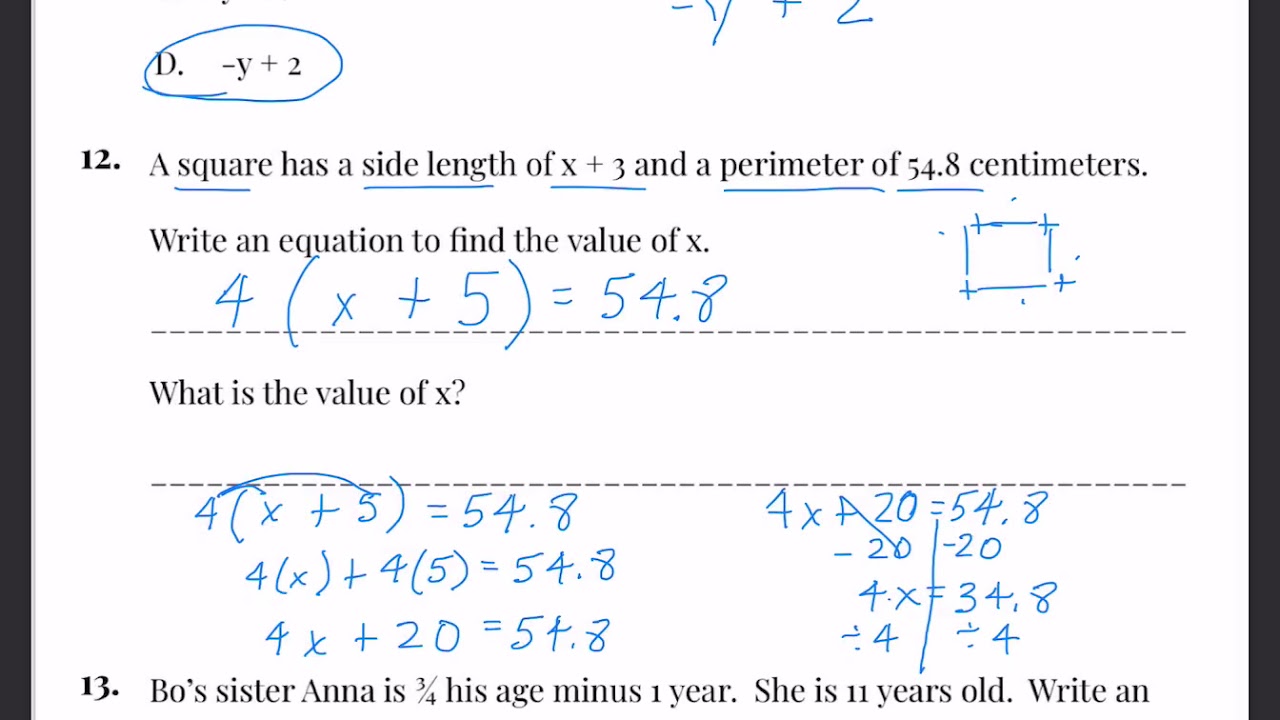 -y + 2
D. -y + 2
12. A square has a side length of x + 3 and a perimeter of 54.8 centimeters.
Write an equation to find the value of x.
4 ( x + 5 ) = 54.8
What is the value of x?
4(x + 5) = 54.8
4(x) + 4(5) = 54.8
4x + 20 = 54.8
4x + 20 = 54.8
- 20 -20
4.x = 34.8
÷4 ÷4
13. Bo’s sister Anna is ¾ his age minus 1 year. She is 11 years old. Write an